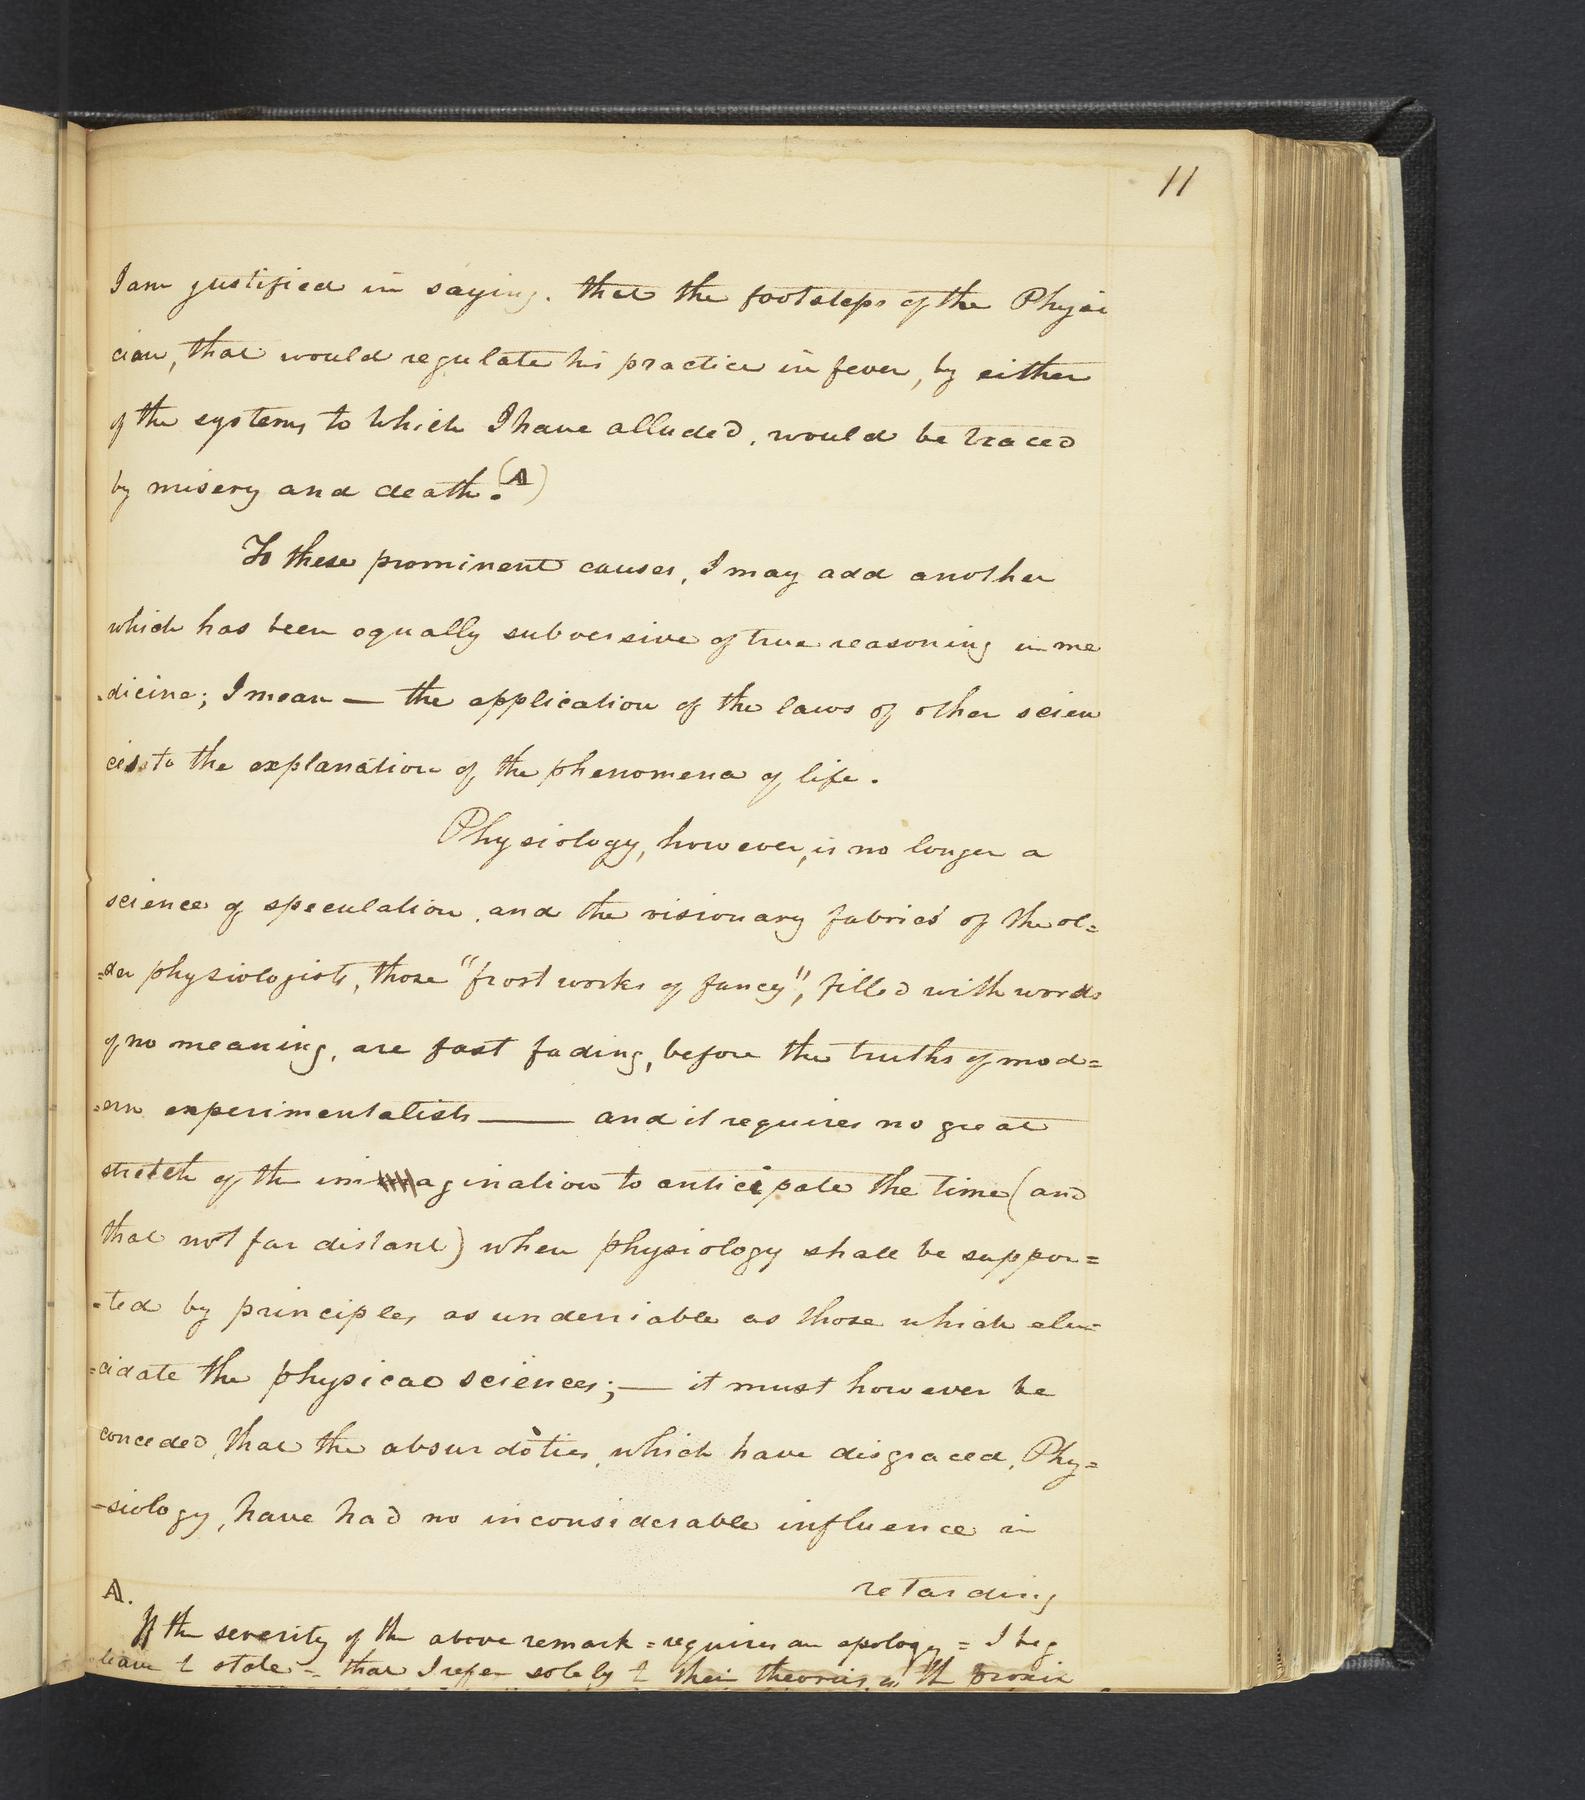 11
I am justified in saying. that the footsteps of the Physi
cian, that would regulate his practice in fever, by either
of the systems to which I have alluded, would be traced
by misery and death.(A)
To these prominent causes, I may add another
which has been equally subversive of true reasoning in me
-dicine; I mean — the application of the laws of other scien
ces to the explanation of the phenomena of life.
Physiology, however, is no longer a
science of speculation, and the visionary fabrics of the ol=
=der physiologists, those "frost works of fancy", filled with words
of no meaning, are fast fading, before the truths of mod=
=ern experimentalists — and it requires no great
stretch of the imagination to anticipate the time (and
that not far distant) when physiology shall be suppor=
=ted by principles as undeniable as those which elu=
=cidate the physical sciences; — it must however be
conceded, that the absurdities, which have disgraced, Phy=
=siology, have had no inconsiderable influence in
retarding
A.
If the severity of the above remark = requires an apology = I beg
leave to state = that I refer solely to their theories, as the proxi